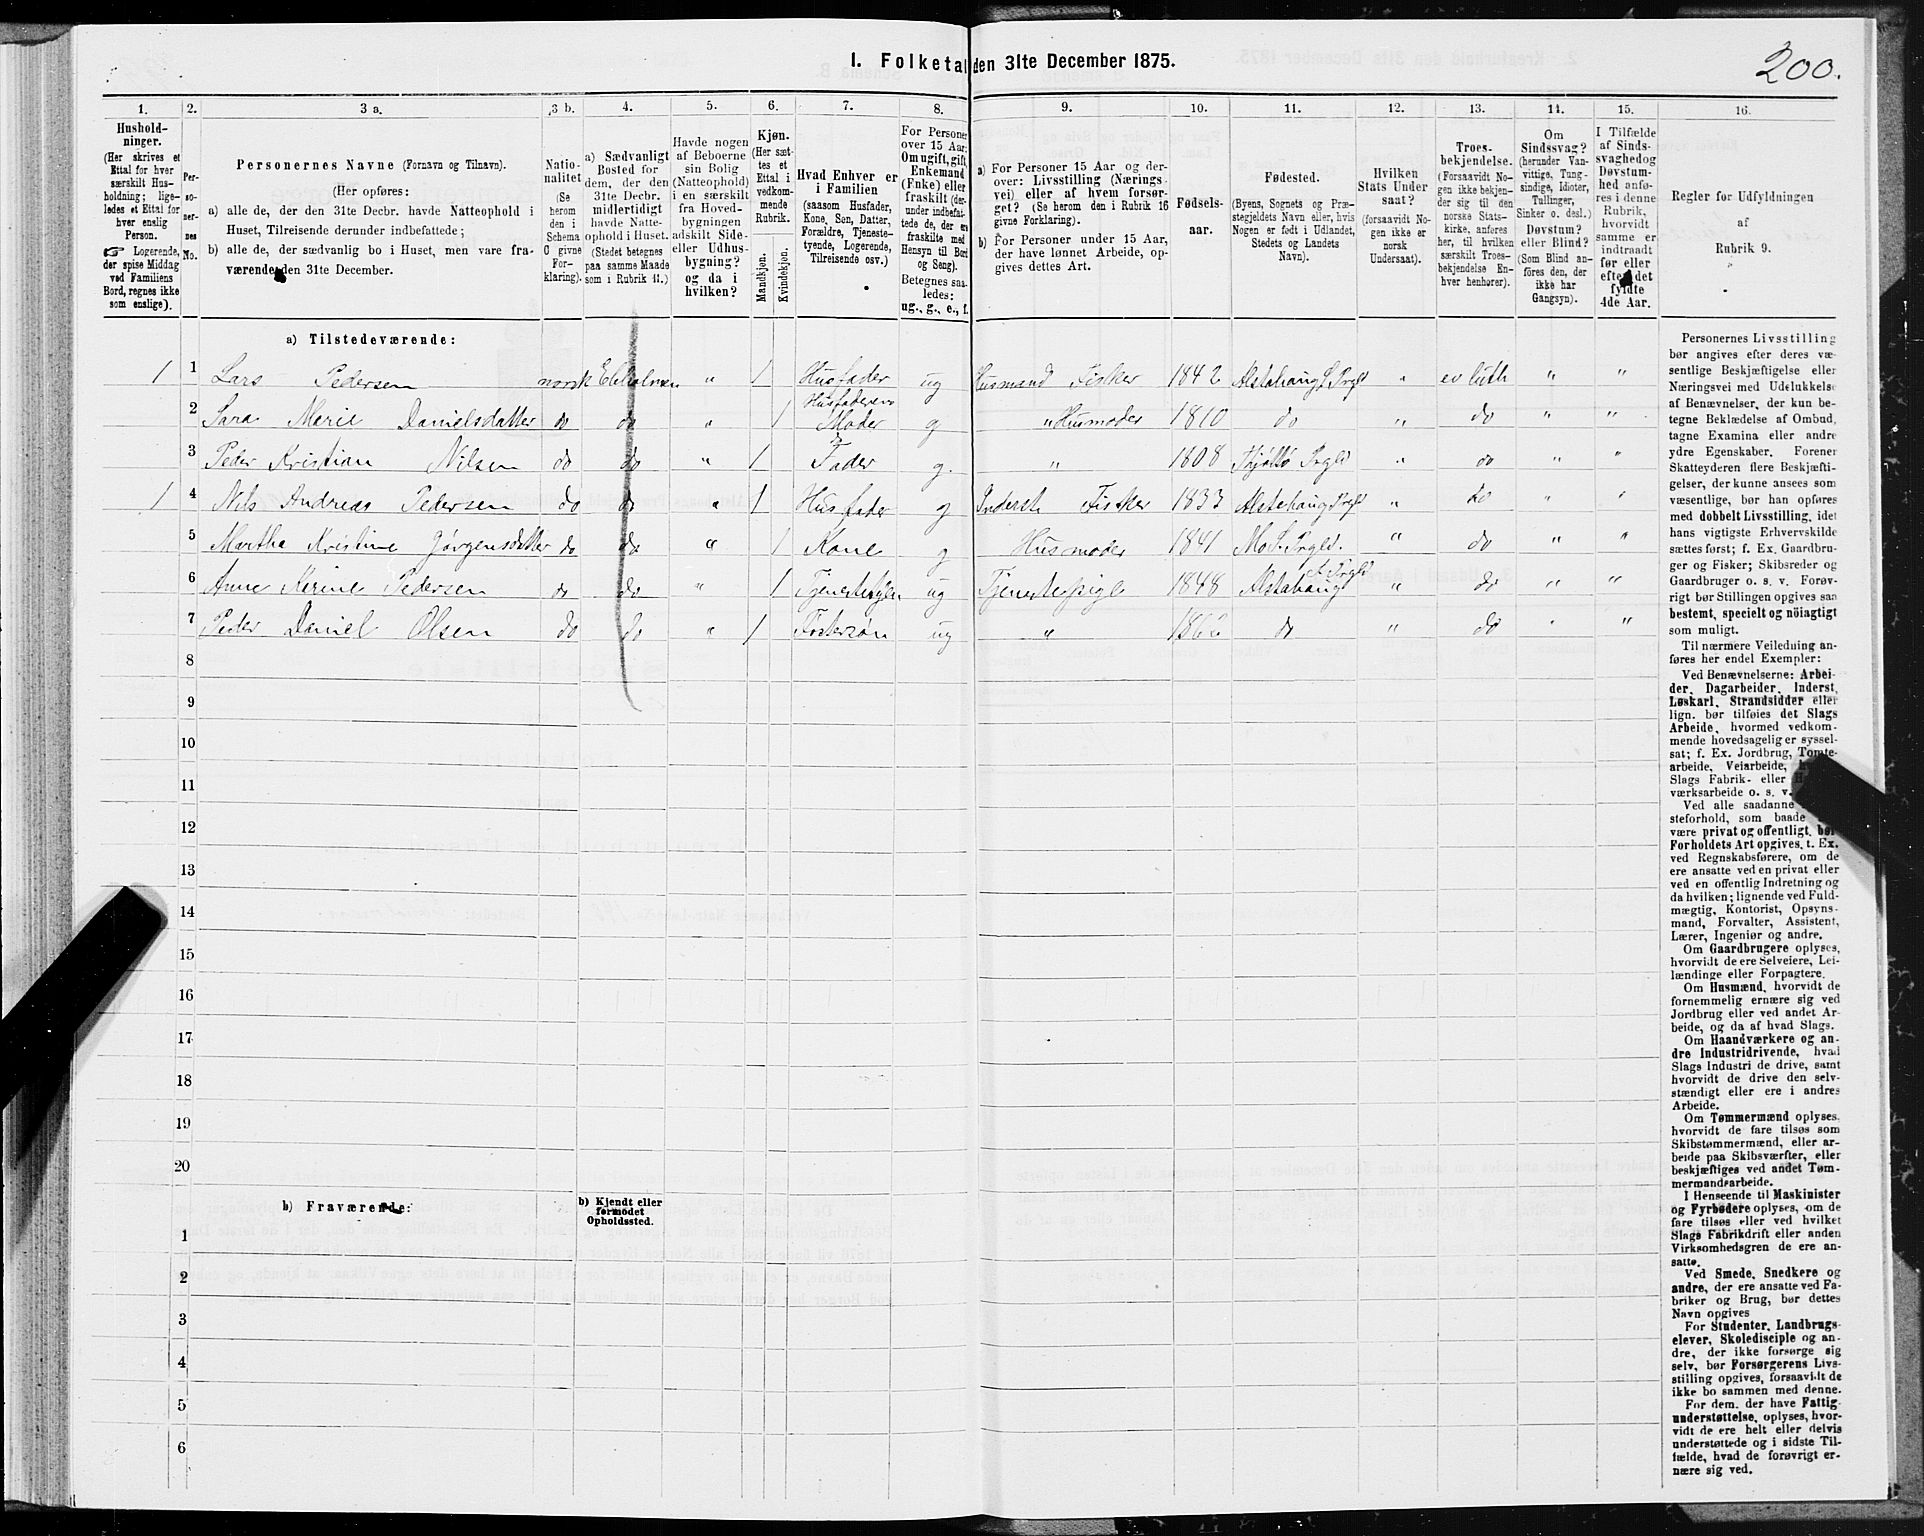 1. Folketal den 31te December 1875.
200.
1. 2. 3 a. 3 b. 4. 5. 6. 7. 8. 9. 10. 11. 12. 13. 14. 15. 16.
Hushold-
ninger.
(Her skrives et
Ettal for hver
særskilt Hus-
holdning; lige-
ledes et Ettal for
hver enslig
Person.
☞ Logerende,
der spise Middag
ved Familiens
Bord, regnes ikke
som enslige).
Per-
so-
ner-
nes
No.
Personernes Navne (Fornavn og Tilnavn).
(Her opføres:
a) alle de, der den 31te Decbr. havde Natteophold i
Huset, Tilreisende derunder indbefattede;
b) alle de, der sædvanlig bo i Huset, men vare fra-
værende den 31te December.
Natio-
nalitet
(Se
herom
den i
Schema
G givne
For-
klaring).
a) Sædvanligt
Bosted for
dem, der den
31te Decbr.
midlertidigt
havde Natte-
ophold i Huset.
(Stedet betegnes
paa samme Maade
som i Rubrik 11.)
Havde nogen
af Beboerne
sin Bolig
(Natteophold)
i en særskilt
fra Hoved-
bygningen
adskilt Side-
eller Udhus-
bygning?
og da i
hvilken?
Kjøn.
(Her sæt-
tes et
Ettal i
vedkom-
mende
Rubrik.
Mandkjøn.
Kvindekjøn.
Hvad Enhver er
i Familien
(saasom Husfader,
Kone, Søn, Datter,
Forældre, Tjeneste-
tyende, Logerende,
Tilreisende osv.)
For Personer
over 15 Aar:
Om ugift, gift,
Enkemand
(Enke) eller
fraskilt (der-
under indbefat-
tede de, der ere
fraskilte med
Hensyn til Bord
og Seng).
Betegnes saa-
ledes:
ug., g., e., f.
a) For Personer 15 Aar og der-
over: Livsstilling (Nærings-
vei) eller af hvem forsør-
get? (Se herom den i Rubrik 16
givne Forklaring).
b) For Personer under 15 Aar,
der have lønnet Arbeide, op-
gives dettes Art.
Fødsels-
aar.
Fødested.
(Byens, Sognets og Præ-
stegjeldets Navn eller, hvis
Nogen er født i Udlandet,
Stedets og Landets
Navn).
Hvilken
Stats Under-
saat?
(forsaavidt No-
gen ikke er
norsk
Undersaat).
Troes-
bekjendelse.
(Forsaavidt No-
gen ikke bekjen-
der sig til den
norske Stats-
kirke, anføres
her, til hvilken
særskilt Troes-
bekjendelse En-
hver henhører).
Om
Sindssvag?
(herunder Van-
vittige, Tung-
sindige, Idioter,
Tullinger,
Sinker o. desl.)
Døvstum?
eller Blind?
(Som Blind an-
føres den, der
ikke har
Gangsyn).
I Tilfælde
af Sinds-
svaghed og
Døvstum-
hed anfø-
res i denne
Rubrik,
hvorvidt
samme er
indtraadt
før eller
efter det
fyldte
4de Aar.
Regler for Udfyldningen
af
Rubrik 9.
a) Tilstedeværende:
1 1 Lars Pedersen norsk " 1 Husfader ug Husmand Fisker 1842 Alstahaug S. Prgld " ev luth " "
2 Sara Marie Danielsdatter do do " 1 Husfaderens Moder g " Husmoder 1810 do " do " "
3 Peder Kristian Nilsen do do " 1 Fader g. " 1808 Tjøttø Prgld " do " "
1 4 Nils Andreas Pedersen do do " 1 Husfader g Inderst Fisker 1833 Alstahaug Prgld " do " "
5 Martha Kristine Jørgensdatter do do " 1 Kone g Husmoder 1841 Mo S. Prgld. " do " "
6 Anne Merine Pedersen do do " 1 ug Tjenestepige 1848 Alstahaug S. Prgld " do " "
7 Peder Daniel Olsen do do " 1 Fostersøn ug " 1866 do " do " "
8
9
10
11
12
13
14
15
16
17
18
19
20
b) Fraværende:
b) Kjendt eller
formodet
Opholdssted.
1
2
3
4
5
6
Personernes Livsstilling
bør angives efter deres væ-
sentlige Beskjæftigelse eller
Næringsvei med Udelukkelse
af Benævnelser, der kun be-
tegne Beklædelse af Ombud,
tagne Examina eller andre
ydre Egenskaber. Forener
Skatteyderen flere Beskjæfti-
gelser, der kunne ansees som
væsentlige, bør han opføres
med dobbelt Livsstilling, idet
hans vigtigste Erhvervskilde
sættes først; f. Ex. Gaardbru-
ger og Fisker; Skibsreder og
Gaardbruger o. s. v. Forøv-
rigt bør Stillingen opgives saa
bestemt, specielt og nöiagtigt
som muligt.
Til nærmere Veiledning an-
føres her endel Exempler:
Ved Benævnelserne: Arbei-
der, Dagarbeider, Inderst,
Løskarl, Strandsidder eller
lign. bør tilføies det Slags
Arbeide, hvormed vedkom-
mende hovedsagelig er syssel-
sat; f. Ex. Jordbrug, Tomte-
arbeide, Veiarbeide,
Slags Fabrik- eller
værksarbeide o. s. v.
Ved alle saadanne
steforhold, som baade
være privat og offentligt, bør
Forholdets Art opgives, t. Ex.
ved Regnskabsførere, om de
ere ansatte ved en privat eller
ved en offentlig Indretning og
da hvilken; lignende ved Fuld-
mægtig, Kontorist, Opsyns-
mand, Forvalter, Assistent,
Lærer, Ingeniør og andre.
Om Gaardbrugere oplyses,
hvorvidt de ere Selveiere, Lei-
lændinge eller Forpagtere.
Om Husmænd, hvorvidt de
fornemmelig ernære sig ved
Jordbrug eller ved andet Ar-
beide, og da af hvad Slags.
Om Haandværkere og an-
dre Industridrivende, hvad
Slags Industri de drive, samt
hvorvidt de drive den selv-
stændigt eller ere i andres
Arbeide.
Om Tømmermænd oplyses,
hvorvidt de fare tilsøs som
Skibstømmermænd, eller ar-
beide paa Skibsværfter, eller
beskjæftiges ved andet Tøm-
mermandsarbeide.
I Henseende til Maskinister
og Fyrbødere oplyses, om de
fare tilsøs eller ved hvilket
Slags Fabrikdrift eller anden
Virksomhedsgren de ere an-
satte.
Ved Smede, Snedkere og
andre, der ere ansatte ved Fa-
briker og Brug, bør dettes
Navn opgives
For Studenter, Landbrugs-
elever, Skoledisciple og an-
dre, der ikke forsørge sig
selv, bør Forsørgerens Livs-
stilling opgives, forsaavidt de
ikke bo sammen med denne.
For dem, der have Fattig-
understøttelse, oplyses, hvor-
vidt de ere helt eller delvis
understøttede og i sidste Til-
fælde, hvad de forøvrigt er-
nære sig ved.